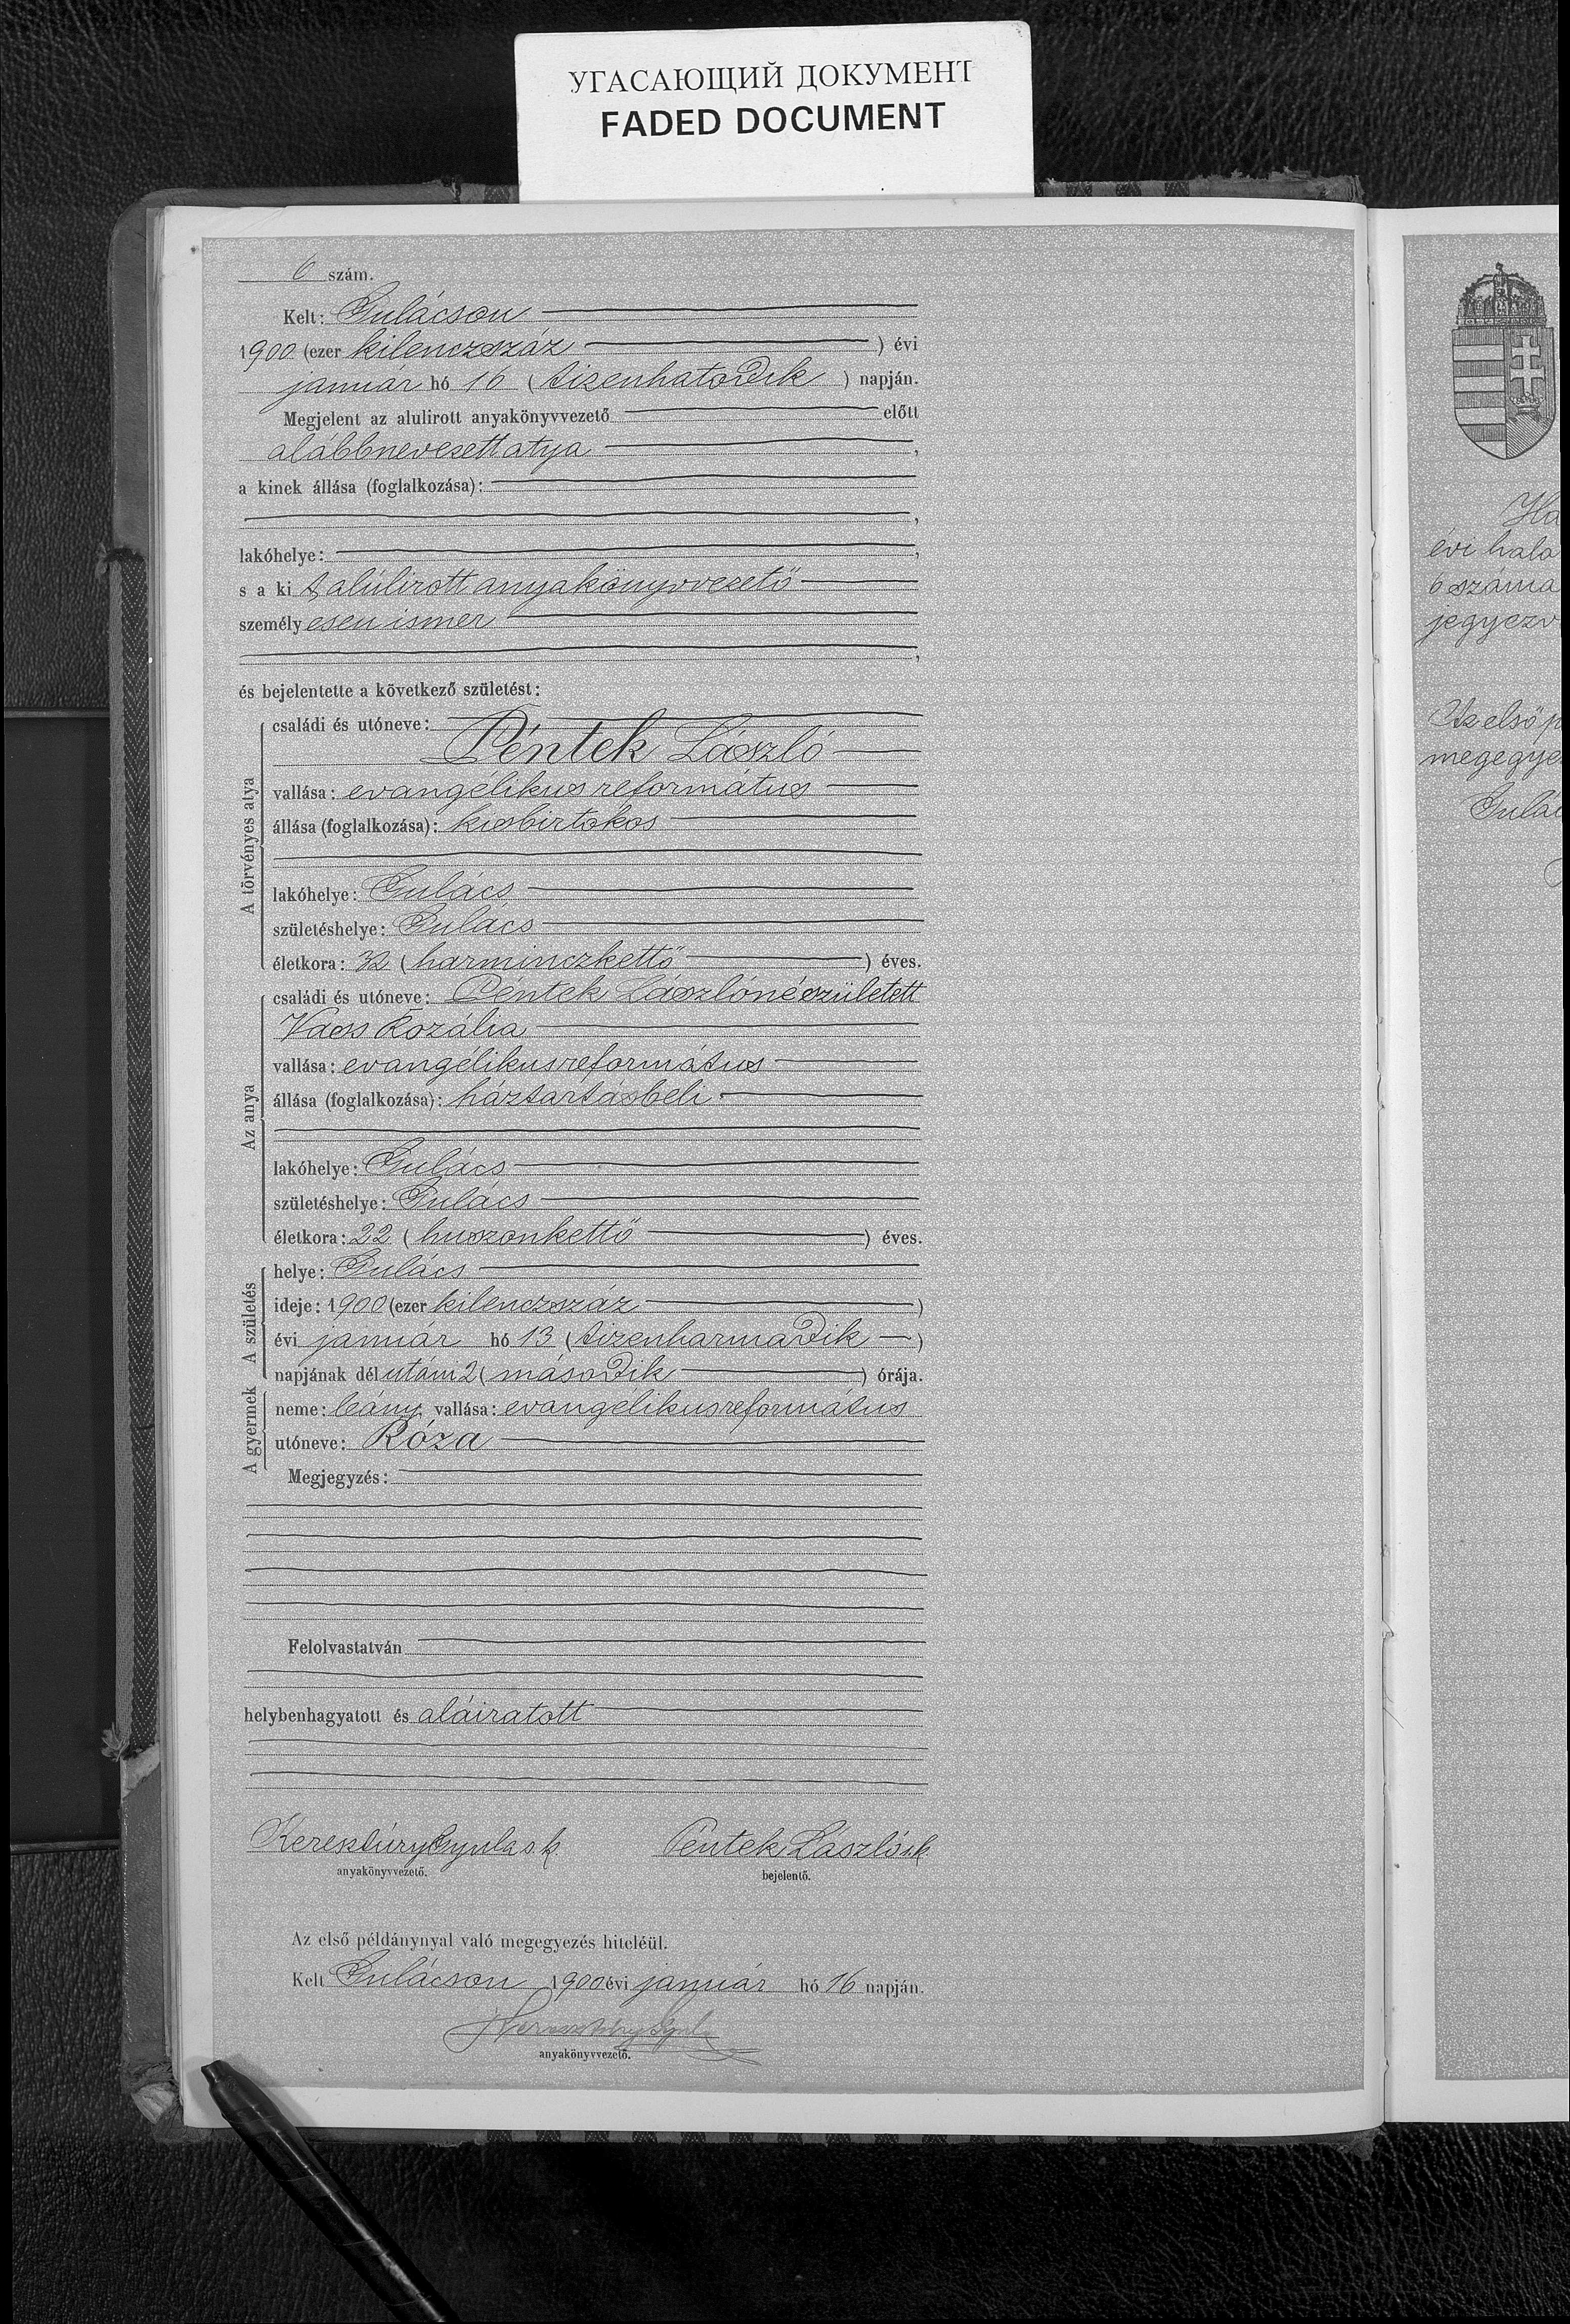 УГАСАЮЩИЙ ДОКУМЕНТ
FADED DOCUMENT
6 szám.
Kelt: Gulácson
1900 (ezer kilenczszáz ) évi
január hó 16 (tizenhatodik ) napján.
Megjelent az alulirott anyakönyvvezető előtt
alábbnevezett atya ,
a kinek állása (foglalkozása):
,
lakóhelye: ,
s a ki t alúlirott anyakönyvvezető
személyesen ismer
,
és bejelentette a következő születést:
A törvényes atya
családi és utóneve:
Péntek László
vallása: evangélikus református
állása (foglalkozása): kisbirtokos
lakóhelye: Gulács
születéshelye: Gulács
életkora: 32 (harminczkettő ) éves.
Az anya
családi és utóneve: Péntek Lászlóné született
Vass Rozália
vallása: evangélikus református
állása (foglalkozása): háztartásbeli
lakóhelye: Gulács
születéshelye: Gulács
életkora: 22 (huszonkettő ) éves.
A születés
helye: Gulács
ideje: 1900 (ezer kilenczszáz )
évi január hó 13 (tizenharmadik )
napjának délutáni 2 (második ) órája.
A gyermek
neme: leány vallása: evangélikus református
utóneve: Róza
Megjegyzés:
Felolvastatván
helybenhagyatott és aláiratott
Keresztúry Gyula s.k. Péntek László sk.
anyakönyvvezető. bejelentő.
Az első példánynyal való megegyezés hiteléül.
Kelt Gulácson 1900 évi január hó 16 napján.
Keresztúry Gyula
anyakönyvvezető.
évi hala
6 száma
jegyezv
Az első p
megegye
Gulác